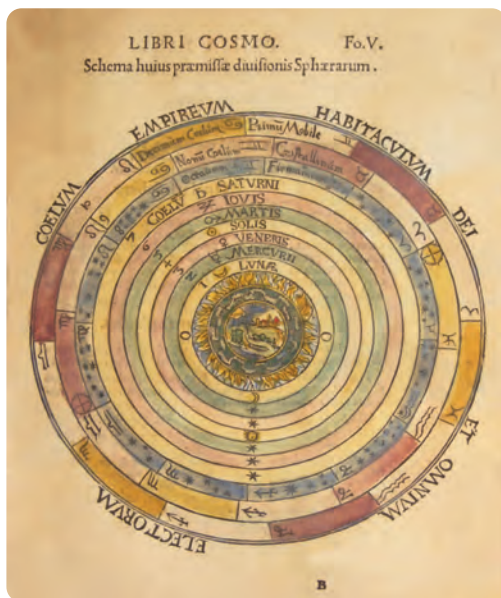 LIBRI COSMO. Fo.V.
Schema huius præmissæ diuisionis Sphærarum.
COELVM EMPIREVM HABITACVLVM DEI ET OMNIVM ELECTORVM
Decimum Coelum Primũ Mobile
Nonũ Coelum Cristallinum
Octauum Firmamentum
COELV SATVRNI
IOVIS
MARTIS
SOLIS
VENERIS
MERCVRII
LVNÆ
7
6
5
4
3
2
1
B